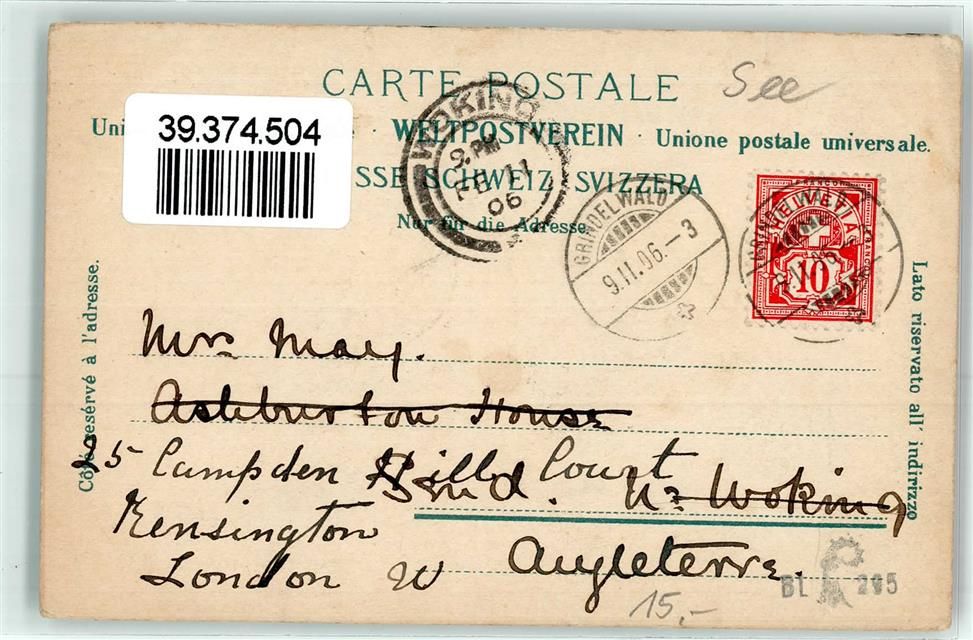 CARTE POSTALE
See
39.374.504
Uni · WELTPOSTVEREIN · Unione postale universale.
SSE SCHWEIZ SVIZZERA
Nur für die Adresse.
WOKING
9. PM
FE 11
06
GRINDELWALD
9.II.06.-3
HELVETIA
10
9.II.06.
Côté réservé à l'adresse.
Lato riservato all' indirizzo
Mrs May.
Ashburton House
25 Campden Hill Court
Send. Nr Woking
Kensington
Angleterre.
London W
15,-
BL 295